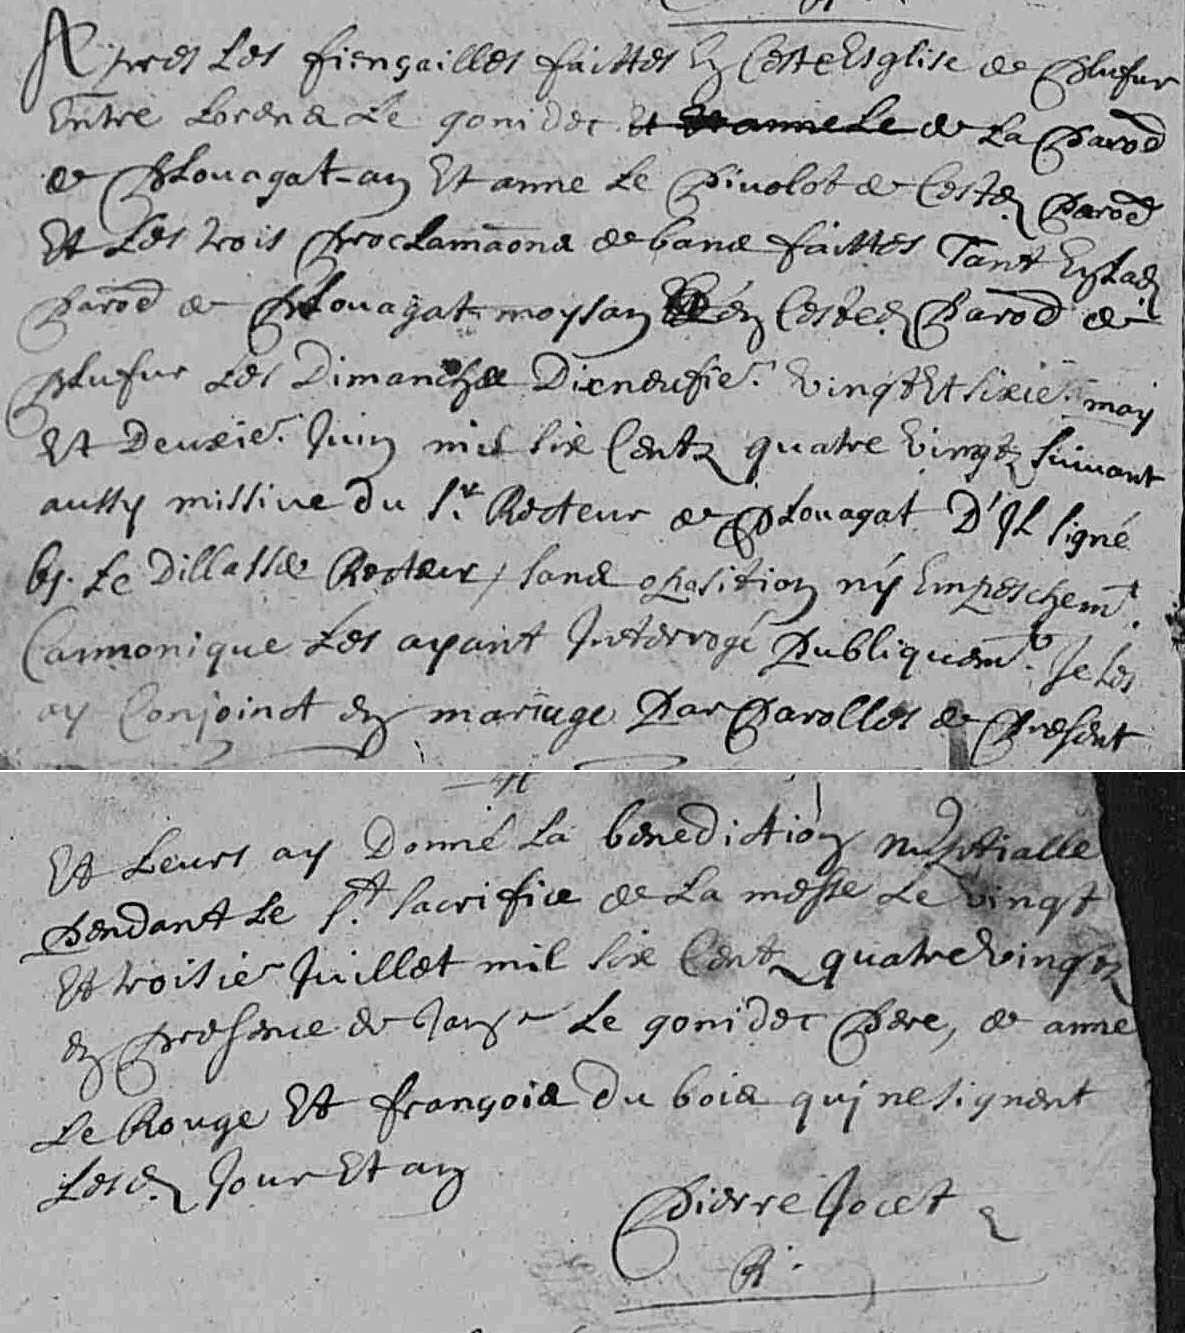 Apres Les fiençailles faittes en Ceste Esglise de Plufur
Entre Lorens Le gonidec et et anne Le de La Parod
de Plouagat-an Et anne Le Pivolot de Ceste Parod
Et Les trois proclamaons de bans faittes Tant En Lad
Parod de Plouagat-moysan en Ceste Parod de
Plufur Les Dimanches Dixneufie. vingt Et sixie. may
Et Deuxie. Juin mil six Centz quatre vingtz suivant
aussy missive du Sr. Recteur de Plouagat D'Il signé
Le Dillasse Recteur, sans oposition ny Empeschemt.
Cannonique Les ayant Interrogé Publiquemt. Je Les
ay Conjoinct en mariage Par Parolles de Present
Et Leurs ay Donné La benediction nuptialle
Pendant Le St. sacrifice de La messe Le vingt
Et troisie Juillet mil six Centz quatre vingtz
en presence de Le gonidec Pere, de anne
Le Rouge Et françois Du bois quj ne signent
Lesd. Jour Et an
Pierre Jocet
R.